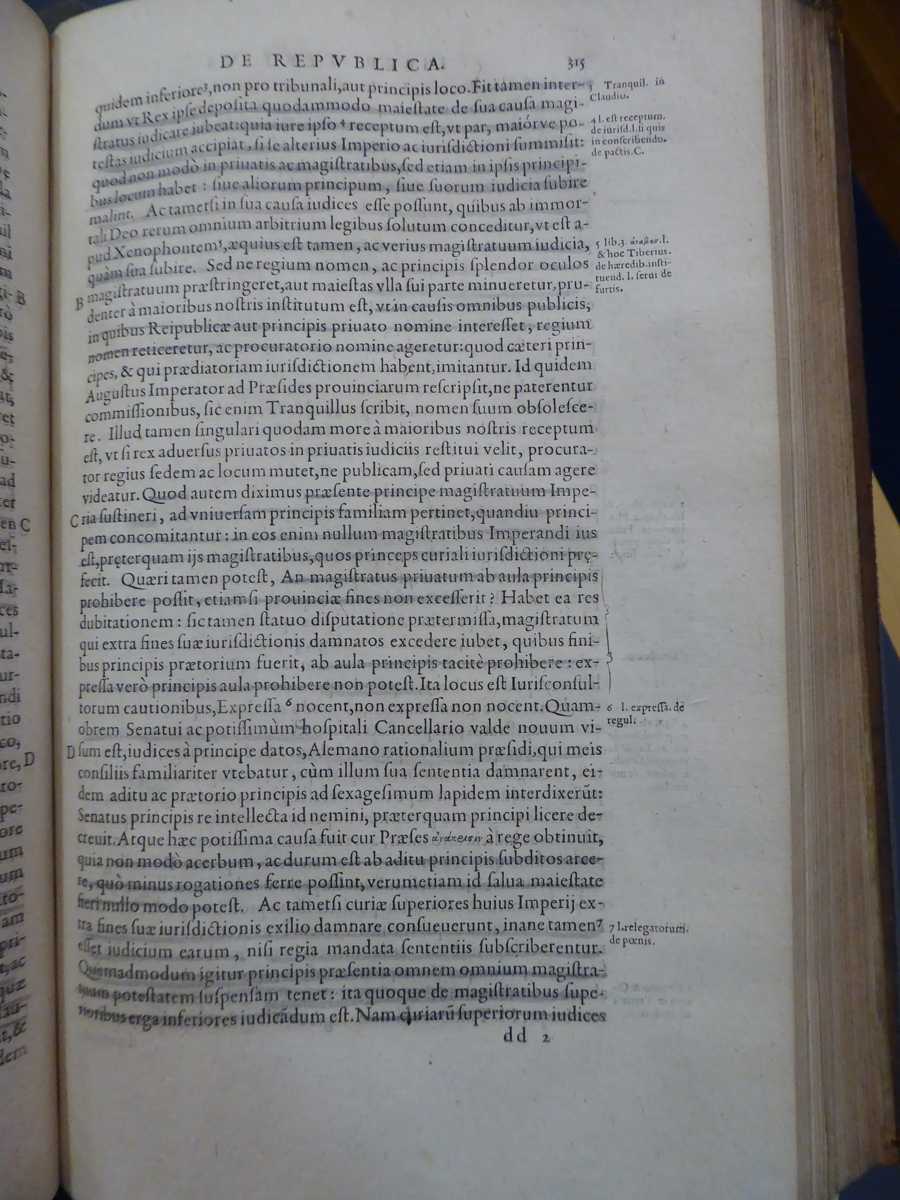 DE REPVBLICA. 315
quidem inferiore³, non pro tribunali, aut principis loco. Fit tamen inter-
dum vt Rex ipse deposita quodammodo maiestate de sua causa magi-
stratus iudicare iubeat: quia iure ipso ⁴ receptum est, vt par, maiórve po-
testas iudicium accipiat, si se alterius Imperio ac iurisdictioni summisit:
quod non modò in priuatis ac magistratibus, sed etiam in ipsis principi-
bus locum habet : siue aliorum principum, siue suorum iudicia subire
malint. Ac tametsi in sua causa iudices esse possunt, quibus ab immor-
tali Deo rerum omnium arbitrium legibus solutum conceditur, vt est a-
pud Xenophontem⁵, æquius est tamen, ac verius magistratuum iudicia,
quàm sua subire. Sed ne regium nomen, ac principis splendor oculos
B magistratuum præstringeret, aut maiestas vlla sui parte minueretur, pru-
denter à maioribus nostris institutum est, vt in causis omnibus publicis,
in quibus Reipublicæ aut principis priuato nomine interesset, regium
nomen reticeretur, ac procuratorio nomine ageretur: quod cæteri prin-
cipes, & qui prædiatoriam iurisdictionem habent, imitantur. Id quidem
Augustus Imperator ad Præsides prouinciarum rescripsit, ne paterentur
commissionibus, sic enim Tranquillus scribit, nomen suum obsolesce-
re. Illud tamen singulari quodam more à maioribus nostris receptum
est, vt si rex aduersus priuatos in priuatis iudiciis restitui velit, procura-
tor regius sedem ac locum mutet, ne publicam, sed priuati causam agere
videatur. Quod autem diximus præsente principe magistratuum Impe-
C ria sustineri, ad vniuersam principis familiam pertinet, quandiu princi-
pem concomitantur : in eos enim nullum magistratibus Imperandi ius
est, pręterquam ijs magistratibus, quos princeps curiali iurisdictioni prę-
fecit. Quæri tamen potest, An magistratus priuatum ab aula principis
prohibere possit, etiamsi prouinciæ fines non excesserit? Habet ea res
dubitationem : sic tamen statuo disputatione prætermissa, magistratum
qui extra fines suæ iurisdictionis damnatos excedere iubet, quibus fini-
bus principis prætorium fuerit, ab aula principis tacitè prohibere : ex-
pressa verò principis aula prohibere non potest. Ita locus est Iurisconsul-
torum cautionibus, Expressa ⁶ nocent, non expressa non nocent. Quam-
obrem Senatui ac potissimùm hospitali Cancellario valde nouum vi-
D sum est, iudices à principe datos, Alemano rationalium præsidi, qui meis
consiliis familiariter vtebatur, cùm illum sua sententia damnarent, ei-
dem aditu ac prætorio principis ad sexagesimum lapidem interdixerūt:
Senatus principis re intellecta id nemini, præterquam principi licere de-
creuit. Atque hæc potissima causa fuit cur Præses à rege obtinuit,
quia non modò acerbum, ac durum est ab aditu principis subditos arce-
re, quò minus rogationes ferre possint, verumetiam id salua maiestate
fieri nullo modo potest. Ac tametsi curiæ superiores huius Imperij ex-
tra fines suæ iurisdictionis exilio damnare consueuerunt, inane tamen⁷
esset iudicium earum, nisi regia mandata sententiis subscriberentur.
Quemadmodum igitur principis præsentia omnem omnium magistra-
tuum potestatem suspensam tenet : ita quoque de magistratibus supe-
rioribus erga inferiores iudicādum est. Nam curiarū superiorum iudices
dd 2
3 Tranquil. in
Claudio.
4 l. est receptum.
de iurisd. l. si quis
in conscribendo.
de pactis. C.
5 lib. 3. l.
& hoc Tiberius.
de hæredib. insti-
tuend. l. serui de
furtis.
6 l. expressa. de
regul.
7 l. relegatorum.
de pœnis.